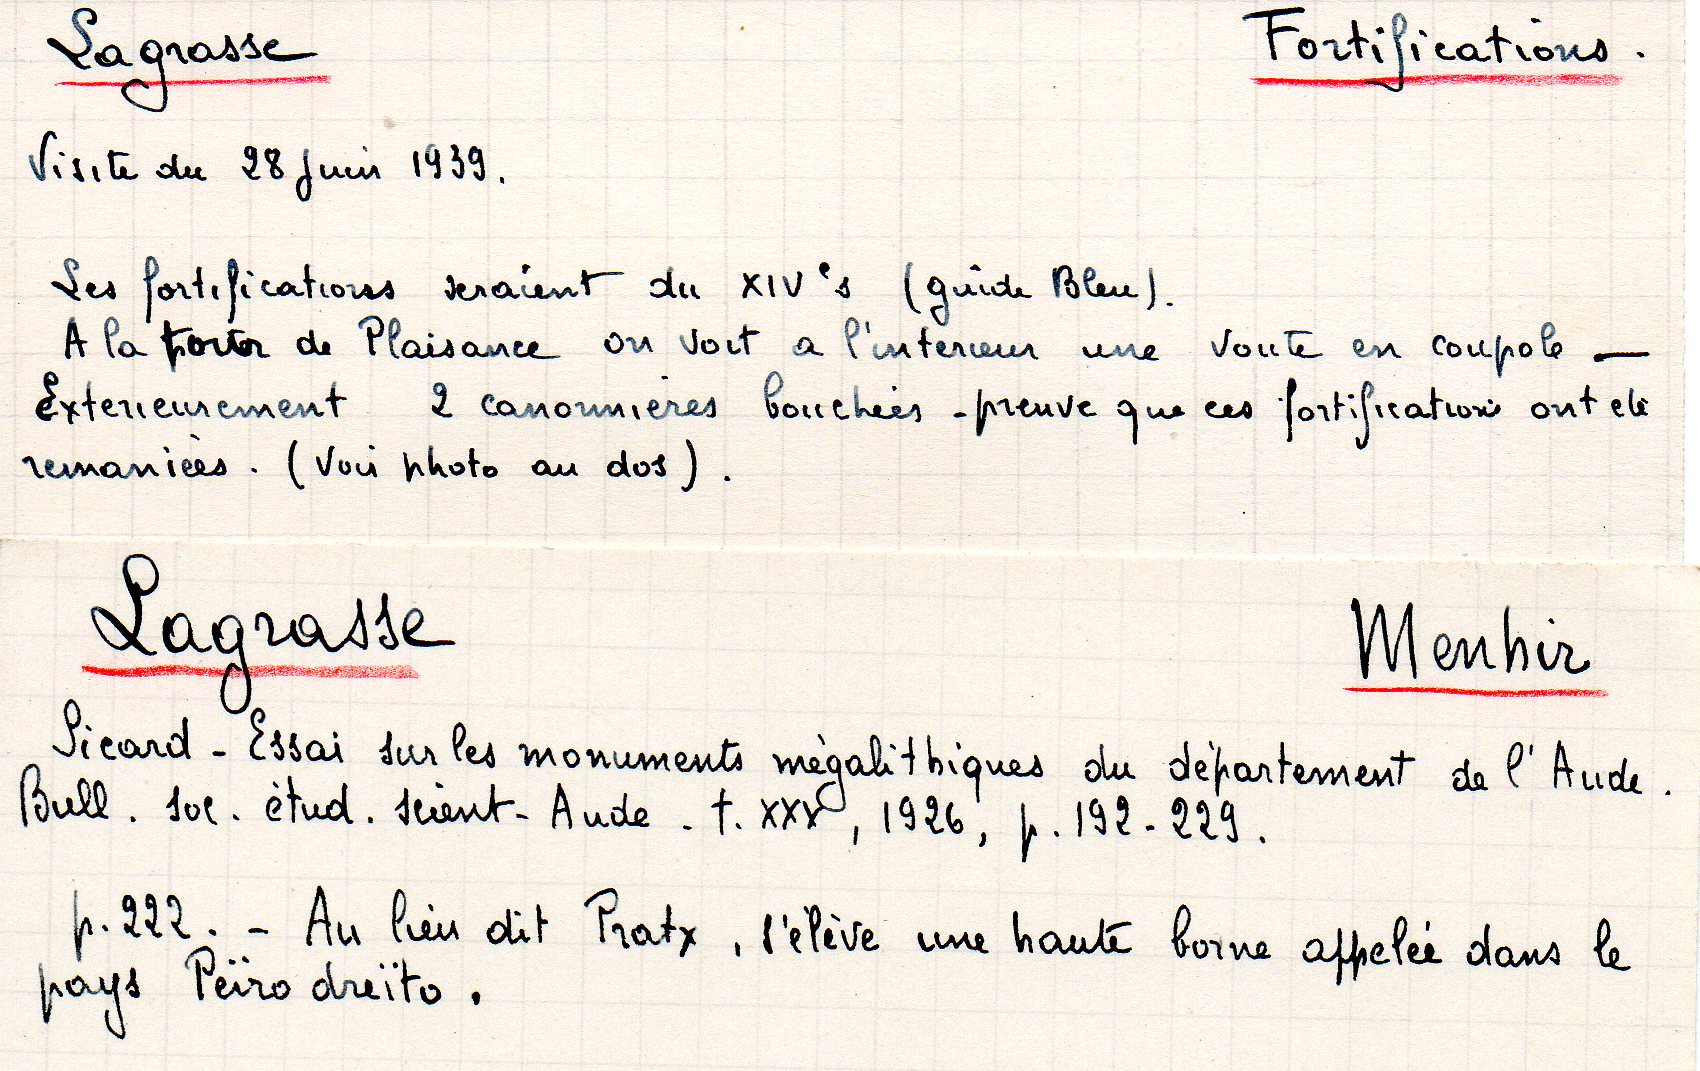 Lagrasse Fortifications.
Visite du 28 juin 1939.
Les fortifications seraient du XIVe s (guide Bleu).
A la porte de Plaisance on voit a l'interieur une voute en coupole —
Exterieurement 2 canonnières bouchées - preuve que ces fortifications ont été
remaniées. (Voir photo au dos).
Lagrasse Menhir
Sicard - Essai sur les monuments mégalithiques du département de l'Aude.
Bull. soc. étud. scient- Aude. t. XXX, 1926, p. 192-229.
p. 222. - Au lieu dit Pratx, s'élève une haute borne appelée dans le
pays Peïro dreïto.